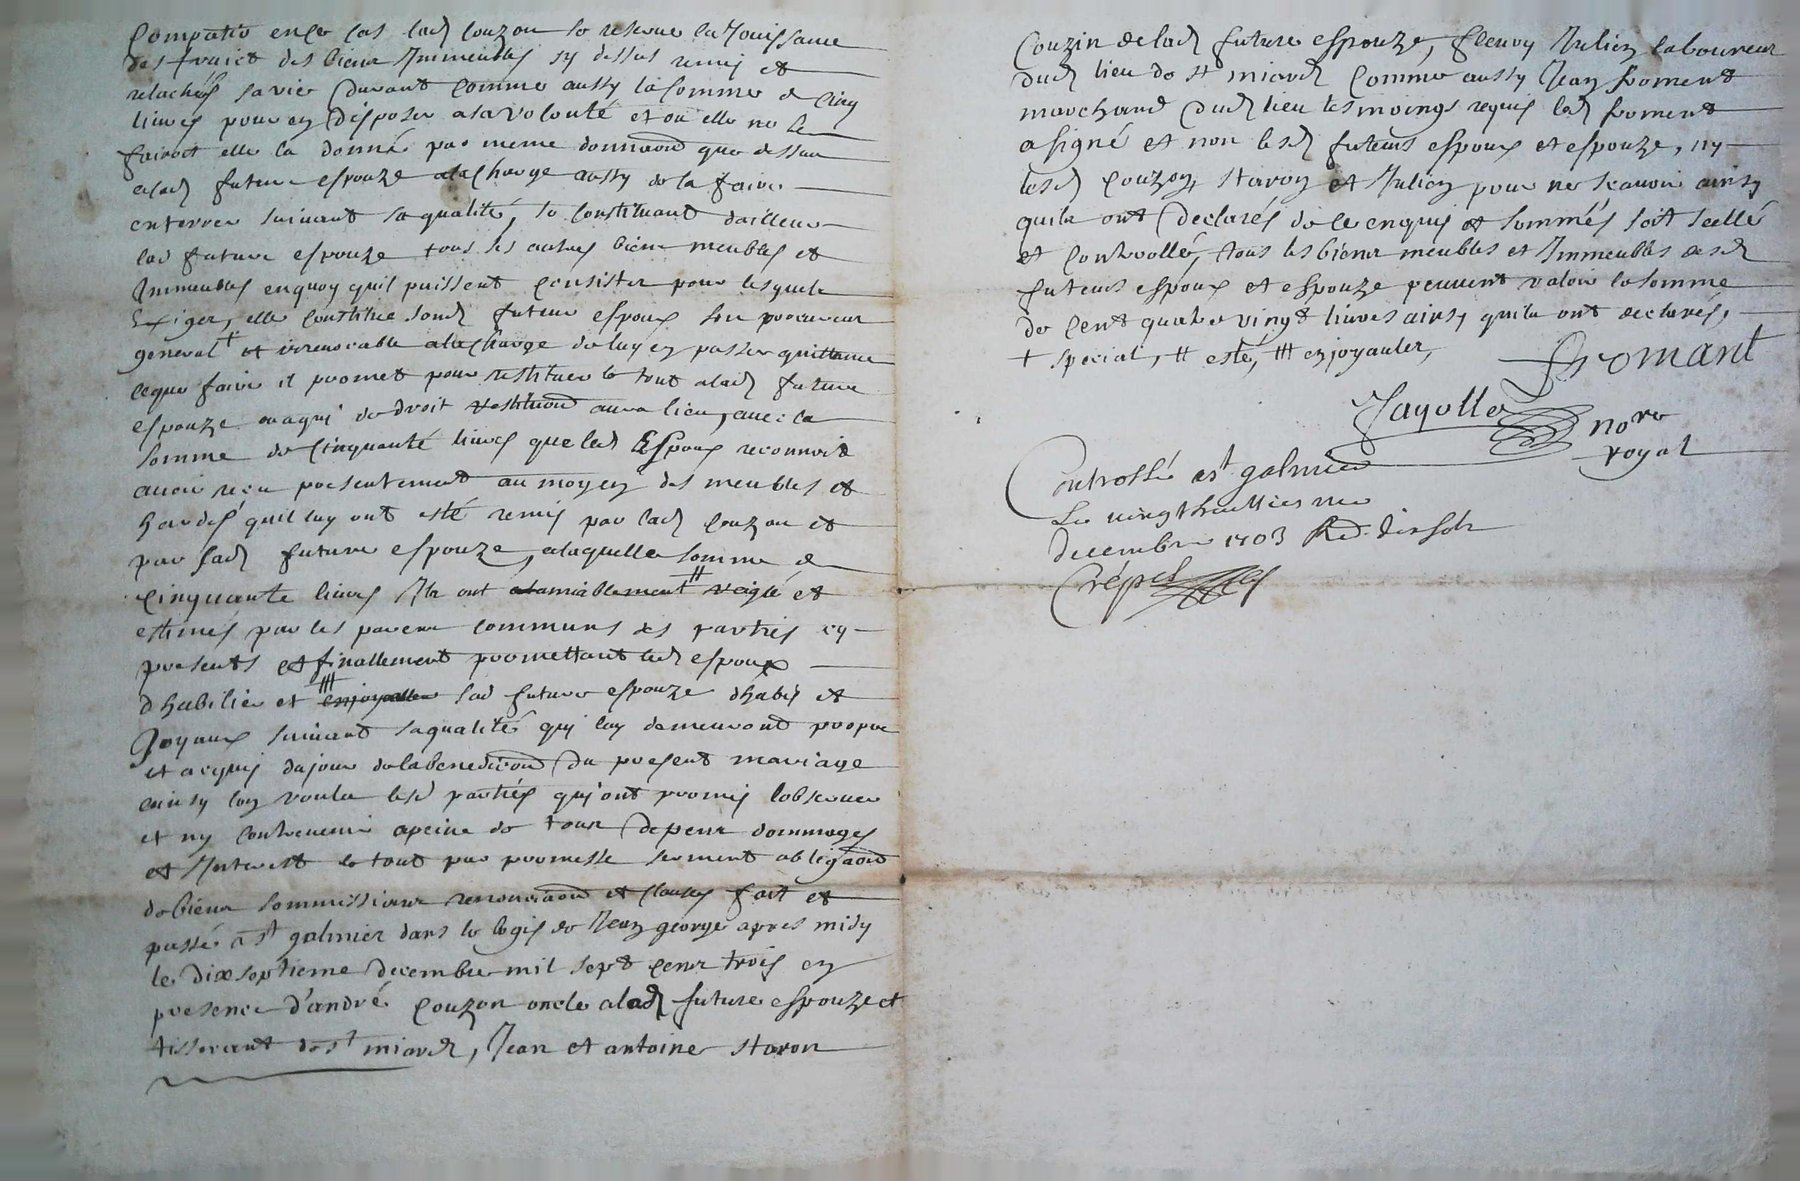 compatir en ce cas lad couzon se reserve la Jouissance
des fruict des biens Immeubles sy dessus remis et
relachés sa vie durant comme aussy la somme de cinq
livres pour en disposer a sa volonté et ou elle ne le
fairoit elle la donné par meme donnaon que dessus
a lad future espouze a la charge aussy de la faire
enterrer suivant sa qualité, se constituant dailleurs
lad future espouze tous ses autres biens meubles et
Immeubles en quoy quil puissent consister pour lesquels
Exiger, elle constitue sond futur espoux son procureur
general + et irrevocable a la charge de luy en passer quittance
ce que faire il promet pour restituer le tout a lad future
espouze ou a qui de droit restituon aura lieu, avec la
somme de Cinquante livres que led Espoux reconnoit
avoir reçu presentement au moyen des meubles et
hardes quil luy ont esté remis par lad couzon et
par sad future espouze, a laquelle somme de
cinquante livres Ils ont amiablement # reiglé et
estimes par les parens communs des parties cy
presents et finallement promettant led espoux
dhabilier et enjoyaller sad future espouze dhabis et
Joyaux suivant sa qualité qui luy demeuront propre
et acquis du jour de la benediction du present mariage
ainsy lon voulu lesd parties qui ont promis lobserver
et ny contrevenir a peine de tous depens dommages
et Interest le tout par promesse serment obligaon
de biens sommissions renonciaon et clauses fait et
passé a st galmier dans le logis de Jean george apres midy
le dixseptieme decembre mil sept cens trois en
presence d'andré couzon oncle a lad future espouze et
tisserant de st miard, Jean et antoine staron
Couzin de lad future espouze, fleury Julien laboureur
dud lieu de st miard comme aussy Jean froment
marchand dud lieu tesmoings requis led froment
a signé et non lesd futeurs espoux et espouze, ny
lesd couzon, staron et Julien pour ne scavoir ainsy
quils ont declarés de ce enquis et sommés soit scellé
et controllé, tous les biens meubles et Immeubles desd
futeurs espoux et espouze peuvent valoir la somme
de cent quatre vingt livres ainsy quils ont declarés,
+ special, # esté, ⧻ enjoyauler,
Fromant
Jayolle nore
royal
Controllé a st galmier
Le vingthuittiesme
decembre 1703 Rd. dix sols
Crépet